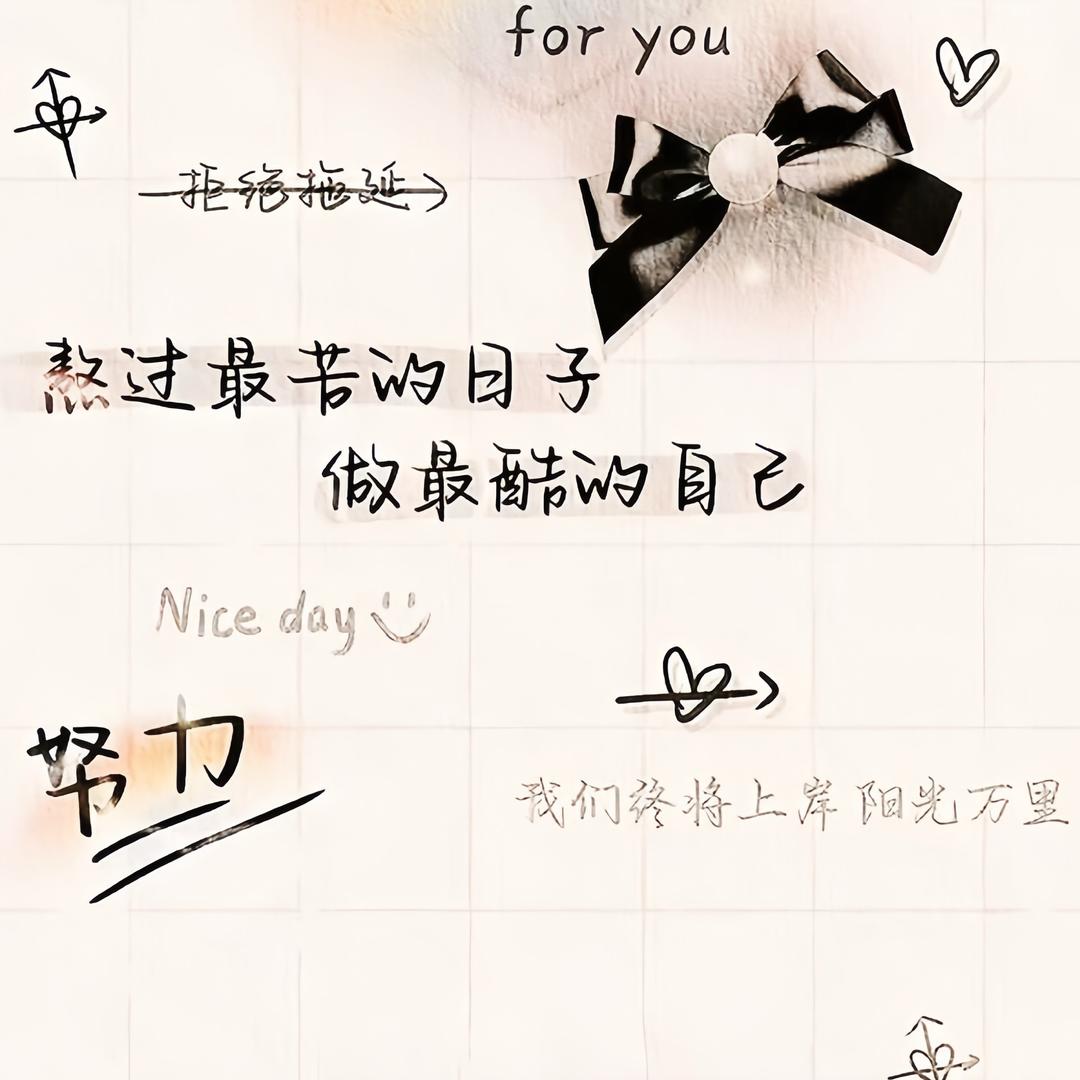 for you
拒绝拖延
熬过最苦的日子
做最酷的自己
Nice day
努力
我们终将上岸 阳光万里